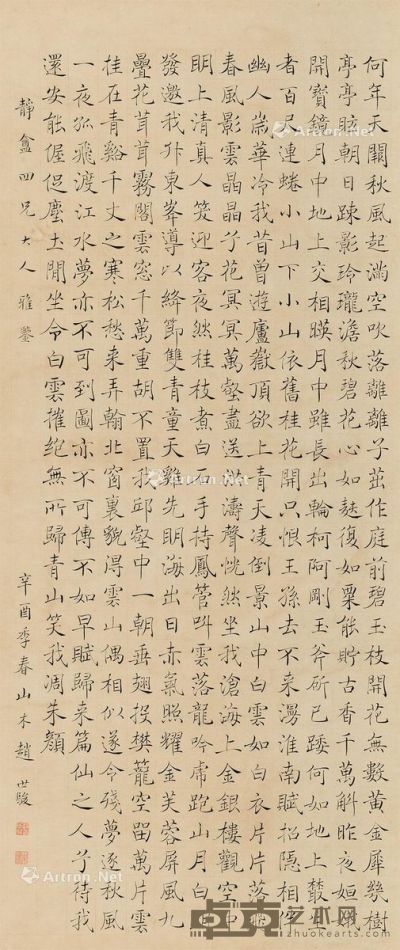 何年天闕秋風起滿空吹落離離子茁作庭前碧玉枝開花無數黃金犀幾樹
亭亭眩朝日疎影玲瓏澹秋碧花心如麩復如粟能貯古香千萬斛昨夜姮娥
開寶鏡月中地上交相暎月中雖長出輪柯阿剛玉斧斫已踒何如地上叢生
者百尺連蜷小山下小山依舊桂花開只恨王孫去不來漫淮南賦招隱相伴
幽人歲華冷我昔曾遊廬嶽頂欲上青天凌倒景山中白雲如白衣片片落
春風影雲晶晶兮花冥冥萬壑盡送洪濤聲恍然坐我滄海上金銀樓觀空中
明上清真人笑迎客夜然桂枝煮白石手持鳳管叫雲落龍吟虎跑山月白
發邀我升東峯導以絳節雙青童天雞先明海出日赤氣照耀金芙蓉屏風九
疊花茸茸霧閣雲窓千萬重胡不置我邱壑中一朝垂翅投樊籠空留萬片雲
桂在青谿千丈之寒松愁来弄翰北窗裏貌得雲山偶相似遂令殘夢逐秋風
一夜孤飛渡江水夢亦不可到圖亦不可傳不如早賦歸来篇仙之人兮待我
還安能偓促塵土間坐令白雲摧絕無所歸青山笑我凋朱顏
靜盦四兄大人雅鑒
辛酉季春山木趙世駿
Artron.Net
卓克艺术网